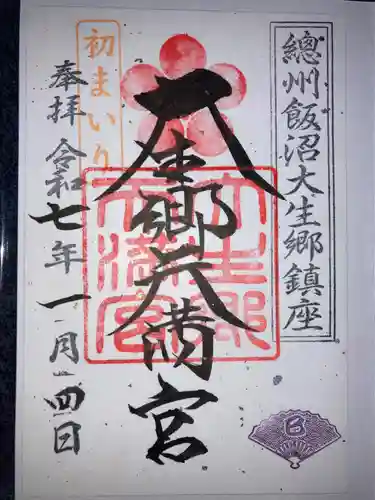 總州飯沼大生郷鎮座
大生郷天満宮
大生郷天満宮
初まいり
奉拝 令和七年 一月四日
巳